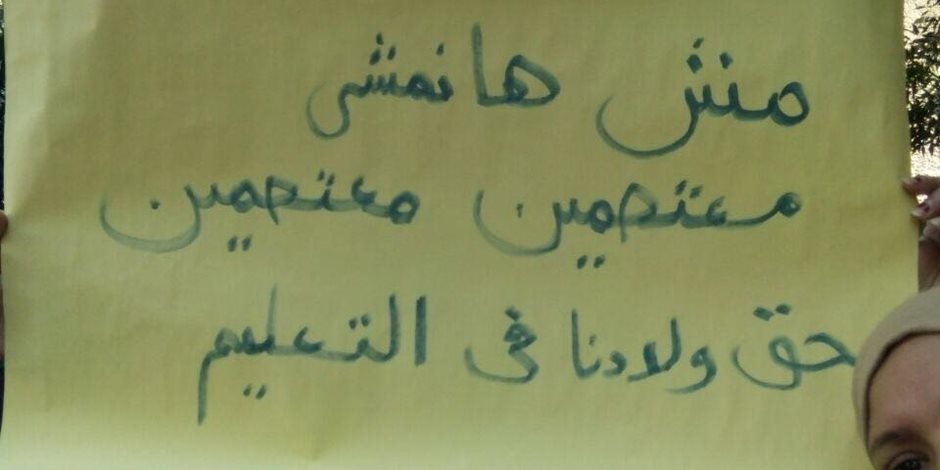 مش هانمشى
معتصمين معتصمين
حق ولادنا فى التعليم